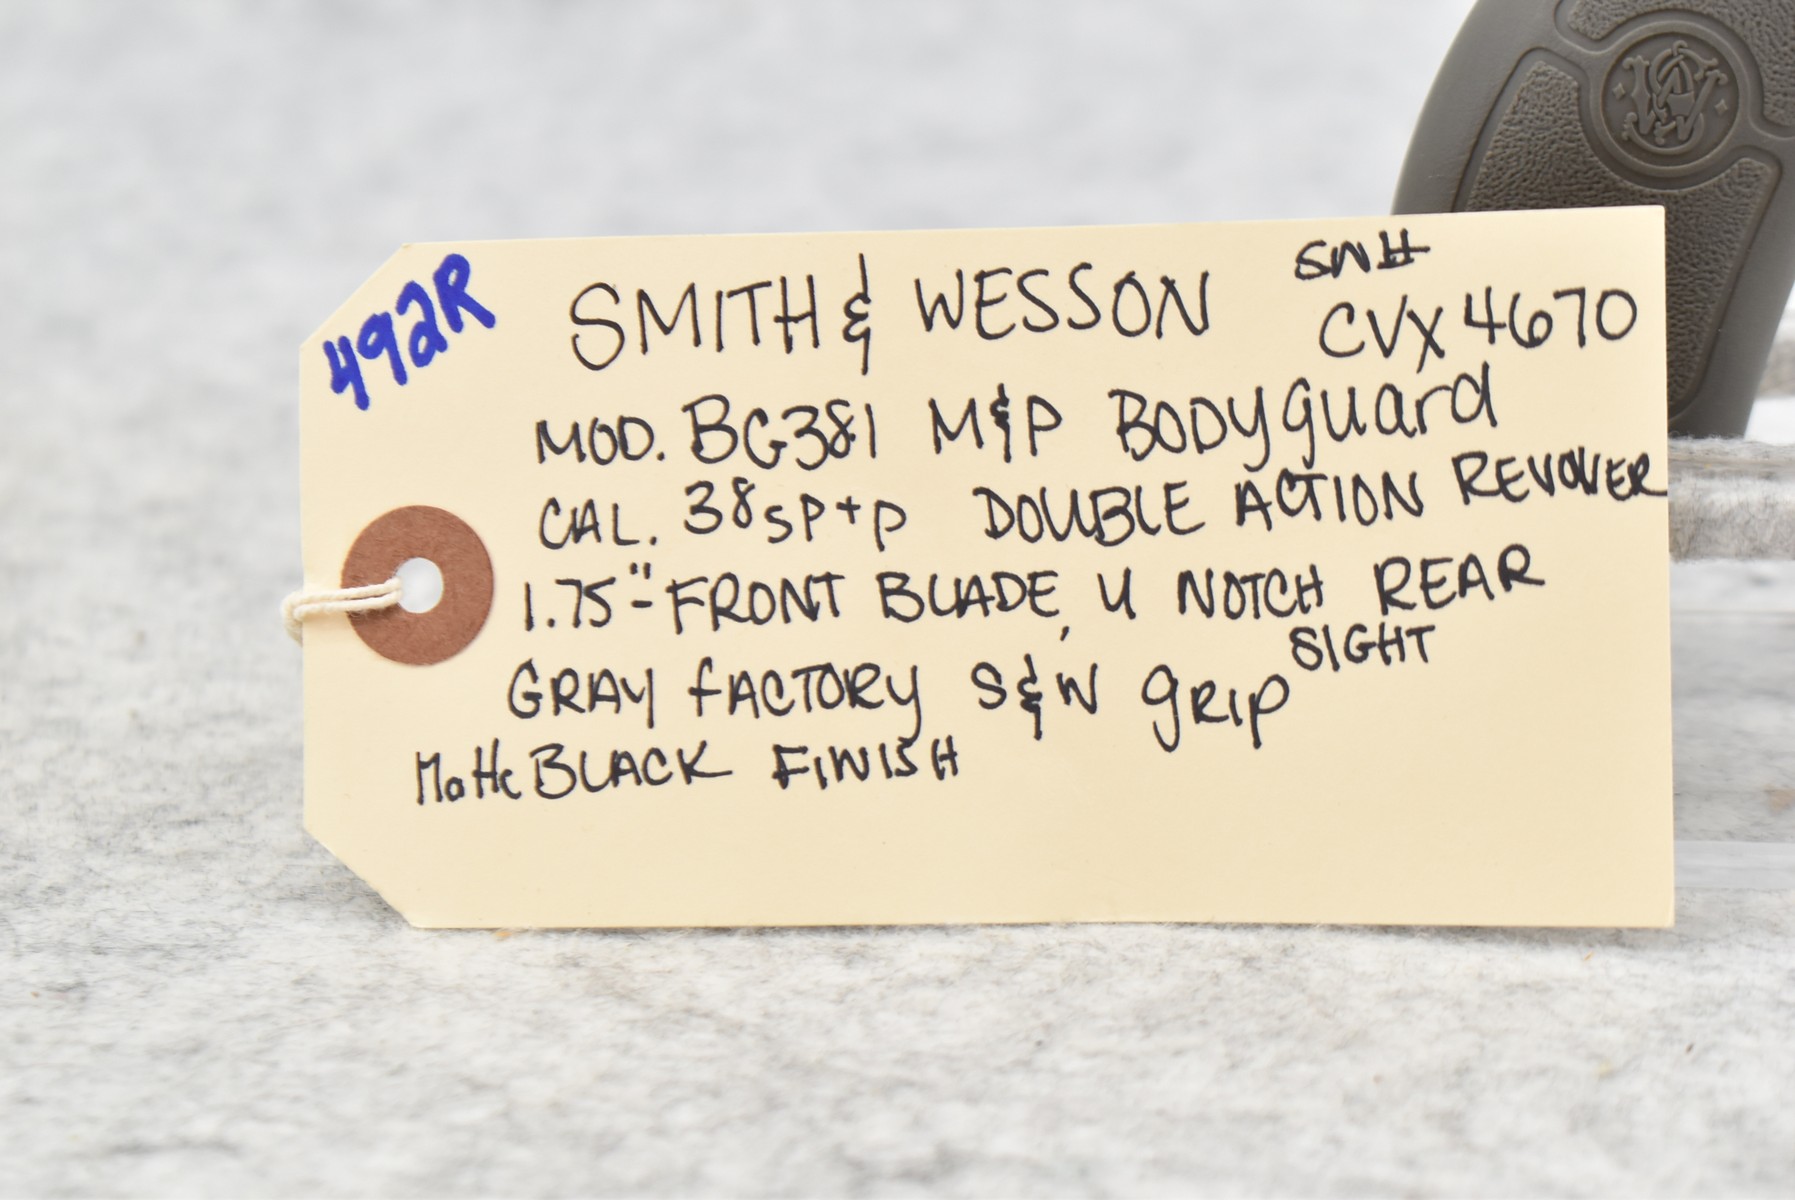 492R
SMITH & WESSON
SN#
CVX4670
MOD. BG381 M&P BODYguard
CAL. 38SP+P DOUBLE ACTION REVOVER
1.75"-FRONT BLADE, U NOTCH REAR
SIGHT
GRAY FACTORY S&W grip
Matte BLACK FINISH